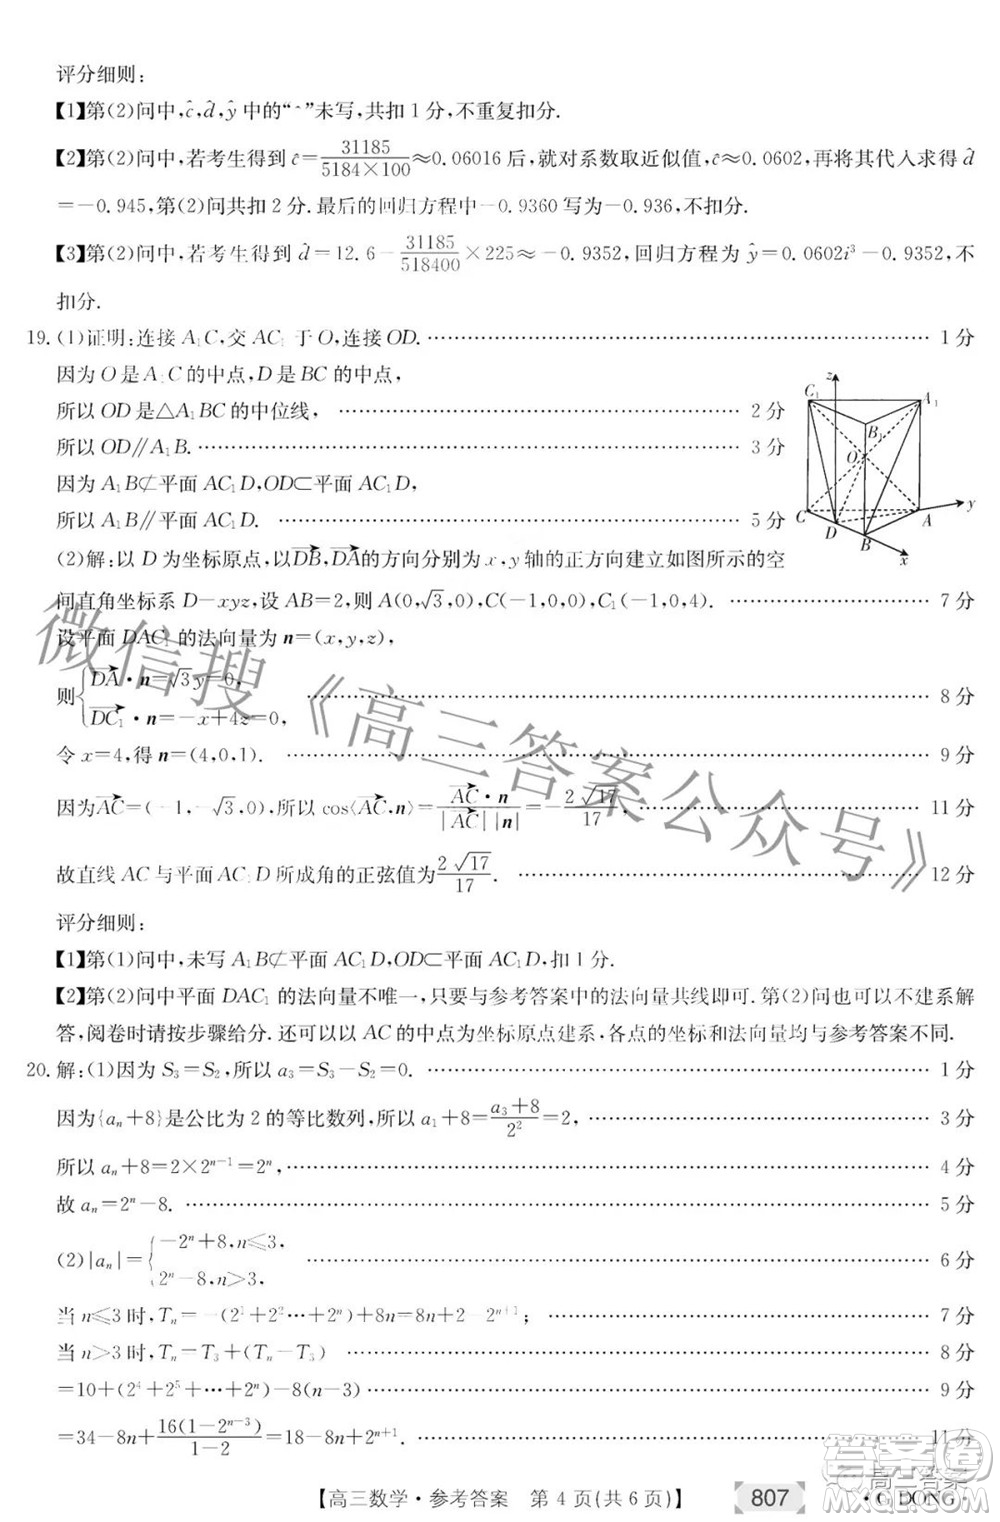 评分细则:
【1】第(2)问中,ĉ,d̂,ŷ 中的“ˆ”未写,共扣 1 分,不重复扣分.
【2】第(2)问中,若考生得到 ĉ=31185/(5184×100)≈0.06016 后,就对系数取近似值,ĉ≈0.0602,再将其代入求得 d̂
=-0.945,第(2)问共扣 2 分.最后的回归方程中-0.9360 写为-0.936,不扣分.
【3】第(2)问中,若考生得到 d̂=12.6-31185/518400×225≈-0.9352,回归方程为 ŷ=0.0602i³-0.9352,不
扣分.
19.(1)证明:连接 A₁C,交 AC₁ 于 O,连接 OD. 1 分
因为 O 是 A₁C 的中点,D 是 BC 的中点,
所以 OD 是△A₁BC 的中位线, 2 分
所以 OD∥A₁B. 3 分
因为 A₁B⊄平面 AC₁D,OD⊂平面 AC₁D,
所以 A₁B∥平面 AC₁D. 5 分
z
C₁
A₁
B₁
O
C
D
B
A
y
x
(2)解:以 D 为坐标原点,以DB→,DA→的方向分别为 x,y 轴的正方向建立如图所示的空
间直角坐标系 D-xyz,设 AB=2,则 A(0,√3,0),C(-1,0,0),C₁(-1,0,4). 7 分
设平面 DAC₁ 的法向量为 n=(x,y,z),
则{DA→·n=√3y=0,
DC₁→·n=-x+4z=0, 8 分
令 x=4,得 n=(4,0,1). 9 分
因为AC→=(-1,-√3,0),所以 cos⟨AC→,n⟩=AC→·n/(|AC→||n|)=-2√17/17. 11 分
故直线 AC 与平面 AC₁D 所成角的正弦值为2√17/17. 12 分
评分细则:
【1】第(1)问中,未写 A₁B⊄平面 AC₁D,OD⊂平面 AC₁D,扣 1 分.
【2】第(2)问中平面 DAC₁ 的法向量不唯一,只要与参考答案中的法向量共线即可.第(2)问也可以不建系解
答,阅卷时请按步骤给分.还可以以 AC 的中点为坐标原点建系,各点的坐标和法向量均与参考答案不同.
20.解:(1)因为 S₃=S₂,所以 a₃=S₃-S₂=0. 1 分
因为{aₙ+8}是公比为 2 的等比数列,所以 a₁+8=(a₃+8)/2²=2, 3 分
所以 aₙ+8=2×2ⁿ⁻¹=2ⁿ, 4 分
故 aₙ=2ⁿ-8. 5 分
(2)|aₙ|={-2ⁿ+8,n≤3,
2ⁿ-8,n>3. 6 分
当 n≤3 时,Tₙ=-(2¹+2²…+2ⁿ)+8n=8n+2-2ⁿ⁺¹; 7 分
当 n>3 时,Tₙ=T₃+(Tₙ-T₃) 8 分
=10+(2⁴+2⁵+…+2ⁿ)-8(n-3) 9 分
=34-8n+16(1-2ⁿ⁻³)/(1-2)=18-8n+2ⁿ⁺¹. 11 分
【高三数学·参考答案 第 4 页(共 6 页)】 807 ·G DONG·
微信搜《高三答案公众号》
高三答案
答案圈
MXQE.COM